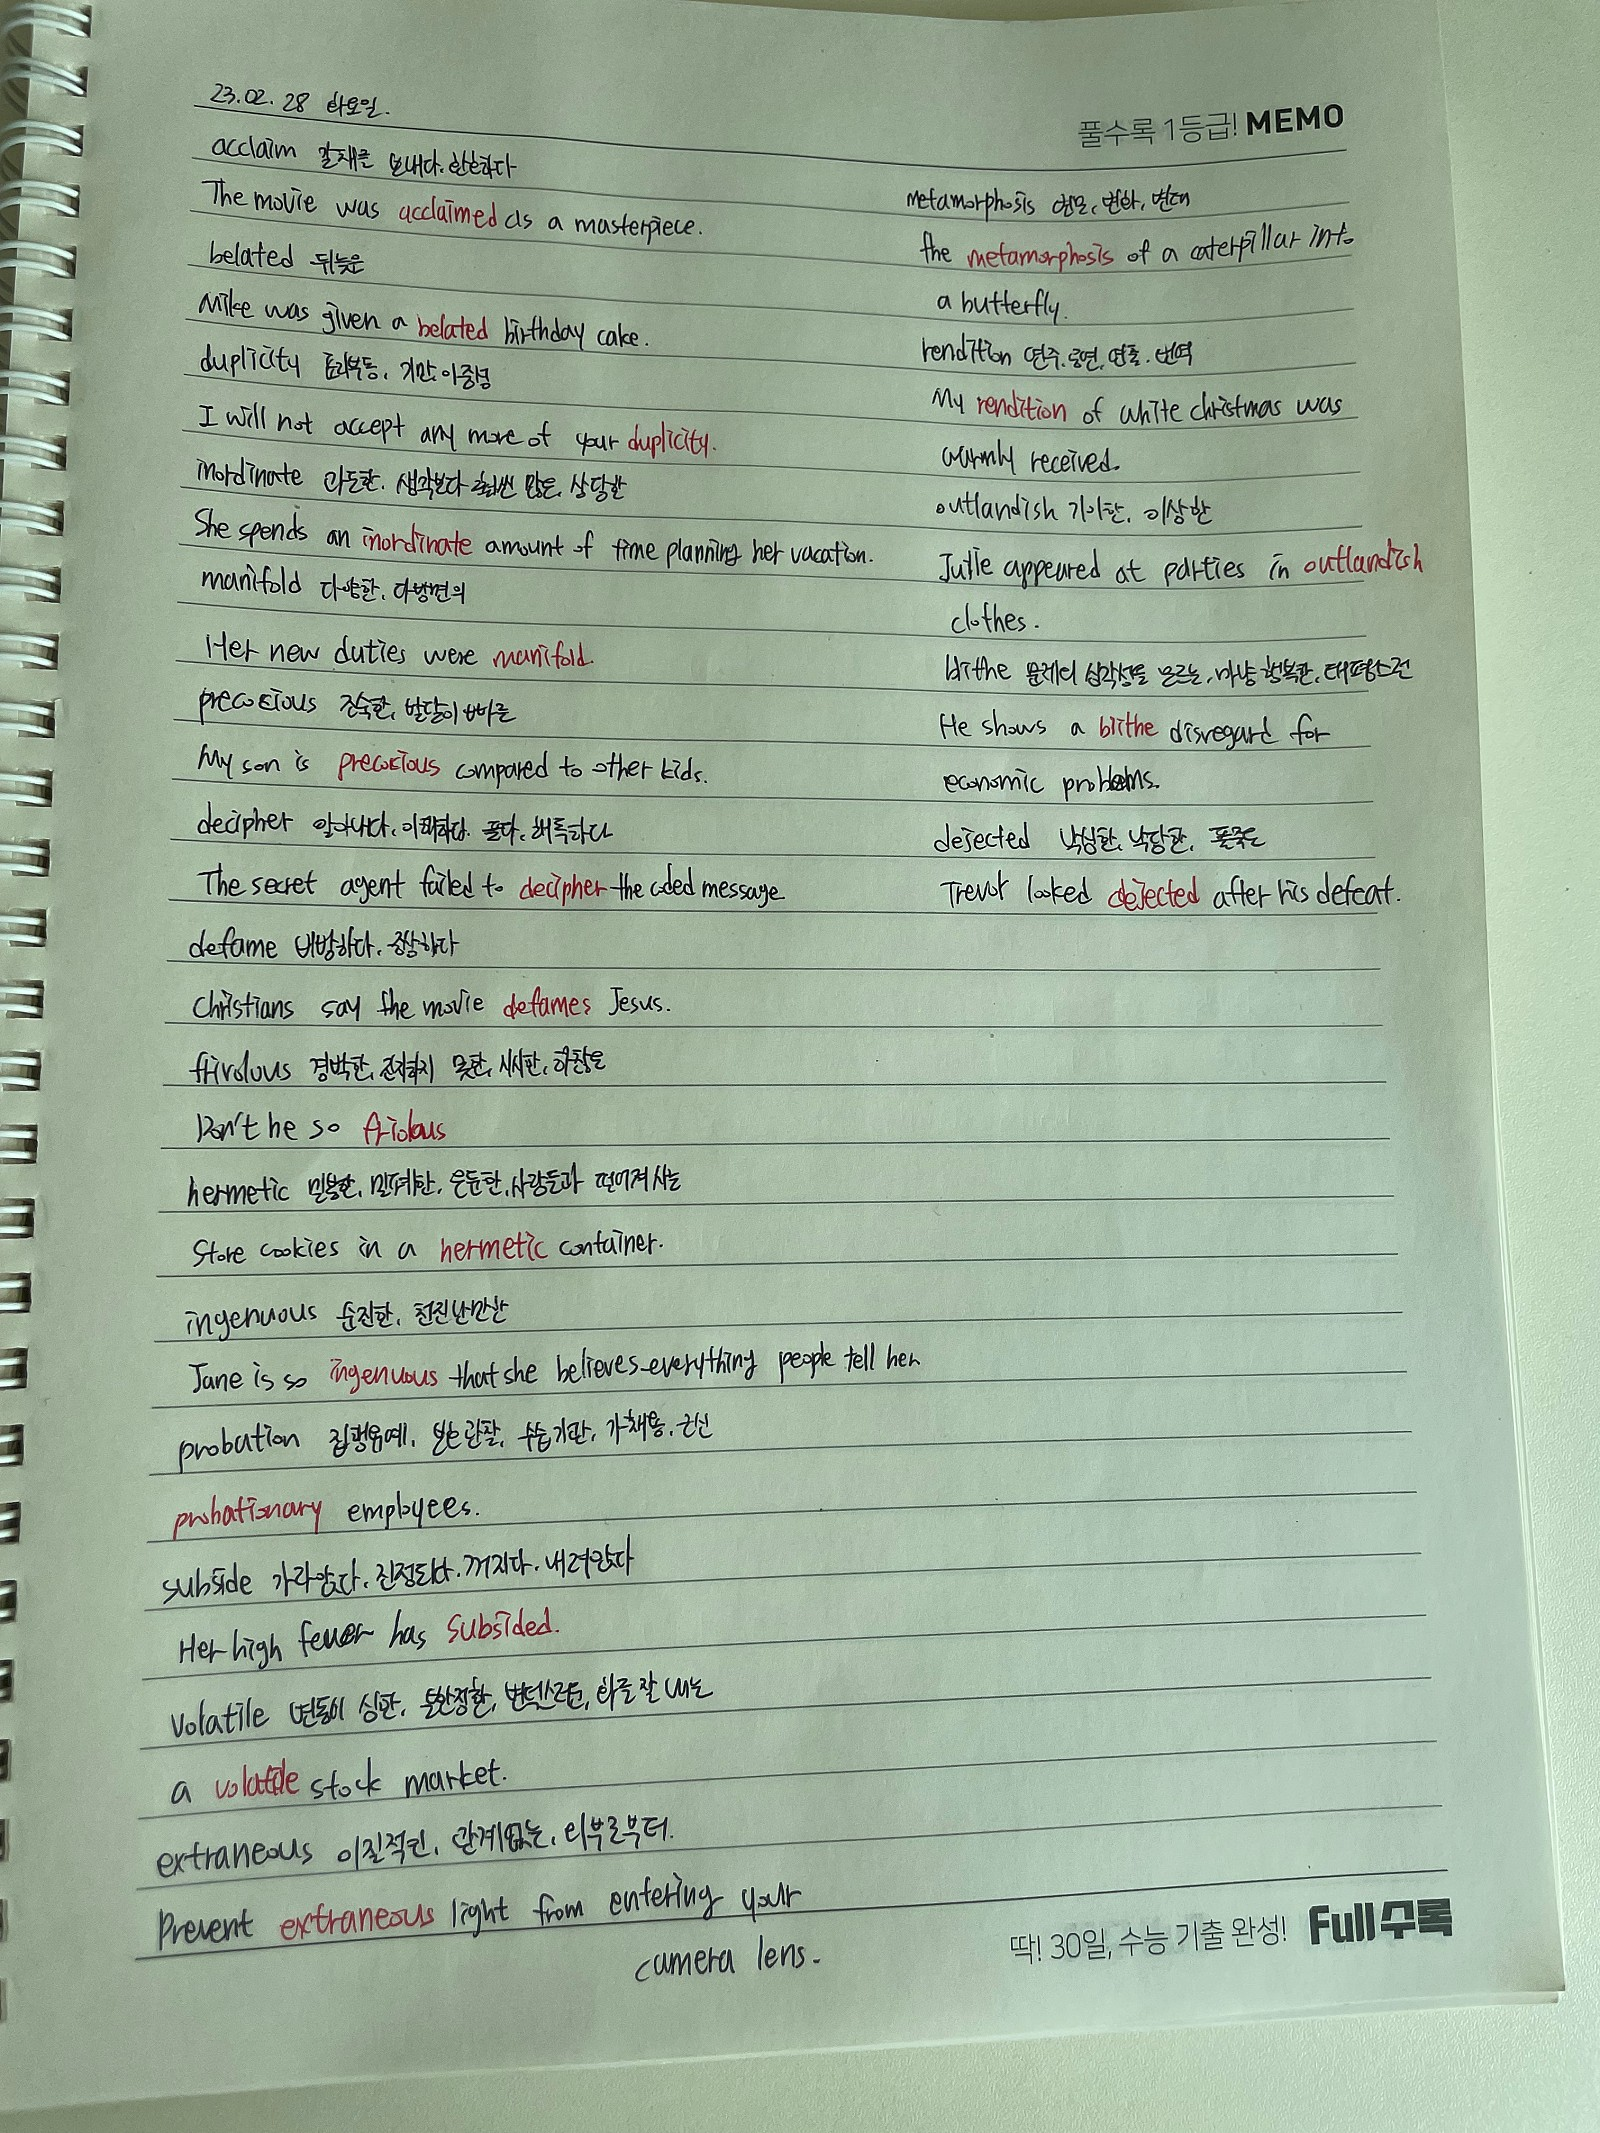 23.02.28 화요일.
풀수록 1등급! MEMO
acclaim 갈채를 보내다, 환호하다
The movie was acclaimed as a masterpiece.
belated 뒤늦은
Mike was given a belated birthday cake.
duplicity 표리부동, 기만, 이중성
I will not accept any more of your duplicity.
inordinate 과도한, 생각보다 훨씬 많은, 상당한
She spends an inordinate amount of time planning her vacation.
manifold 다양한, 다방면의
Her new duties were manifold.
precocious 조숙한, 발달이 빠른
My son is precocious compared to other kids.
decipher 알아내다, 이해하다, 풀다, 해독하다
The secret agent failed to decipher the coded message
defame 비방하다, 중상하다
Christians say the movie defames Jesus.
frivolous 경박한, 진지하지 못한, 시시한, 하찮은
Don't be so
hermetic 밀봉한, 밀폐한, 은둔한, 사람들과 떨어져 사는
Store cookies in a hermetic container.
ingenuous 순진한, 천진난만한
Jane is so ingenuous that she believes everything people tell her.
probation 집행유예, 보호관찰, 수습기간, 가채용, 근신
probationary employees.
subside 가라앉다, 진정되다, 꺼지다, 내려앉다
Her high fever has subsided.
volatile 변동이 심한, 불안정한, 변덕스러운, 화를 잘 내는
a volatile stock market.
extraneous 이질적인, 관계없는, 외부로부터.
Prevent extraneous light from entering your
camera lens.
metamorphosis 변모, 변화, 변태
the metamorphosis of a caterpillar into
a butterfly.
rendition 연주, 공연, 연출, 번역
My rendition of white christmas was
warmly received.
outlandish 기이한, 이상한
Julie appeared at parties in outlandish
clothes.
blithe 문제의 심각성을 모르는, 마냥 행복한, 태평스런
He shows a blithe disregard for
economic problems.
dejected 낙심한, 낙담한, 풀죽은
Trevor looked dejected after his defeat.
딱! 30일, 수능 기출 완성! Full수록